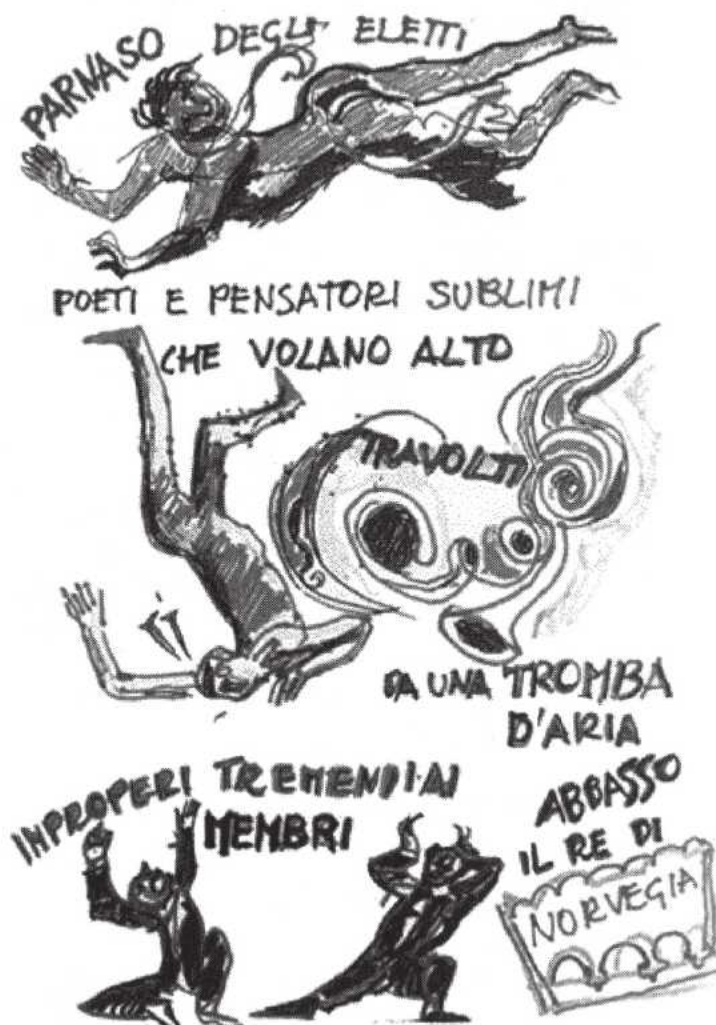 PARNASO DEGLI ELETTI
POETI E PENSATORI SUBLIMI
CHE VOLANO ALTO
TRAVOLTI
DA UNA TROMBA
D'ARIA
IMPROPERI TREMENDI AI
MEMBRI
ABBASSO
IL RE DI
NORVEGIA